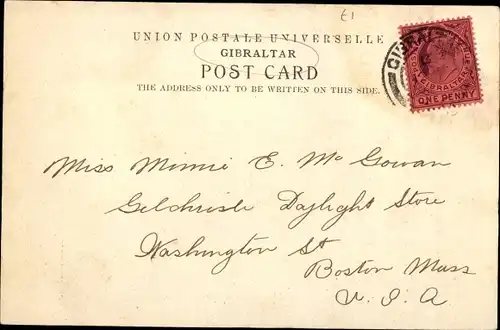 £1
UNION POSTALE UNIVERSELLE
GIBRALTAR
POST CARD
THE ADDRESS ONLY TO BE WRITTEN ON THIS SIDE.
GIBRAL
GIBRALTAR
ONE PENNY
Miss Minnie E. Mc Gowan
Gilchrisle Daylight Store
Washington St
Boston Mass
U. S. A